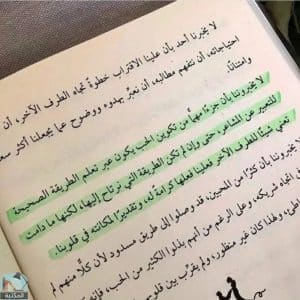 لا يخبرنا أحد بأن علينا الاقتراب خطوةً تجاه الطرف الآخر، أن
احتياجاته، أن نتفهم مطالبه، أن نعبّر بهدوء ووضوح عما يجعلنا أكثر سعـ
وامتنانًا.
لا يخبروننا بأن جزءًا مهمًا من تكوين الحب يكون عبر تعلم الطريقة الصحيحة
للتعبير عن المشاعر، حتى وإن لم تكن الطريقة التي نرتاح إليها، لكنها ما دامت
تعني شيئًا للطرف الآخر فعلينا فعلها كرامةً له، وتقديرًا لمكانته في قلوبنا.
لا يخبروننا بأن كثيرًا من المحبين، قد وصلوا إلى طريق مسدود لأن كلًّا منهم لم
تجاه شريكه، وعل الرغم من أنهم بذلوا الكثير من الحب،
ولهذا كان غير منظور، ولم يقرّب بين قلو
المكتبة